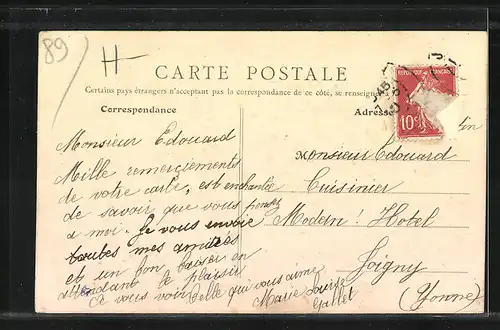 89
H
CARTE POSTALE
Certains pays étrangers n'acceptant pas la correspondance de ce côté, se renseigner
Correspondance
Adresse
REPUBLIQUE FRANÇAISE
10c
Monsieur Edouard
Mille remerciements
de votre carte, est enchantée
de savoir que vous pensez
a moi. Je vous envoie
toutes mes amitiés
et un bon baiser en
attendant le plaisir
de vous voir Celle qui vous aime
Marie Louise
Gallet
Monsieur Edouard
Cuisinier
Modern! Hotel
Joigny
(Yonne)